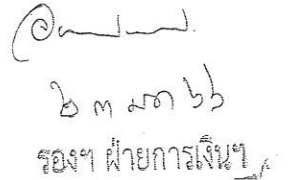 ๒๓ มค ๖๖
รองฯ ฝ่ายการเงินฯ